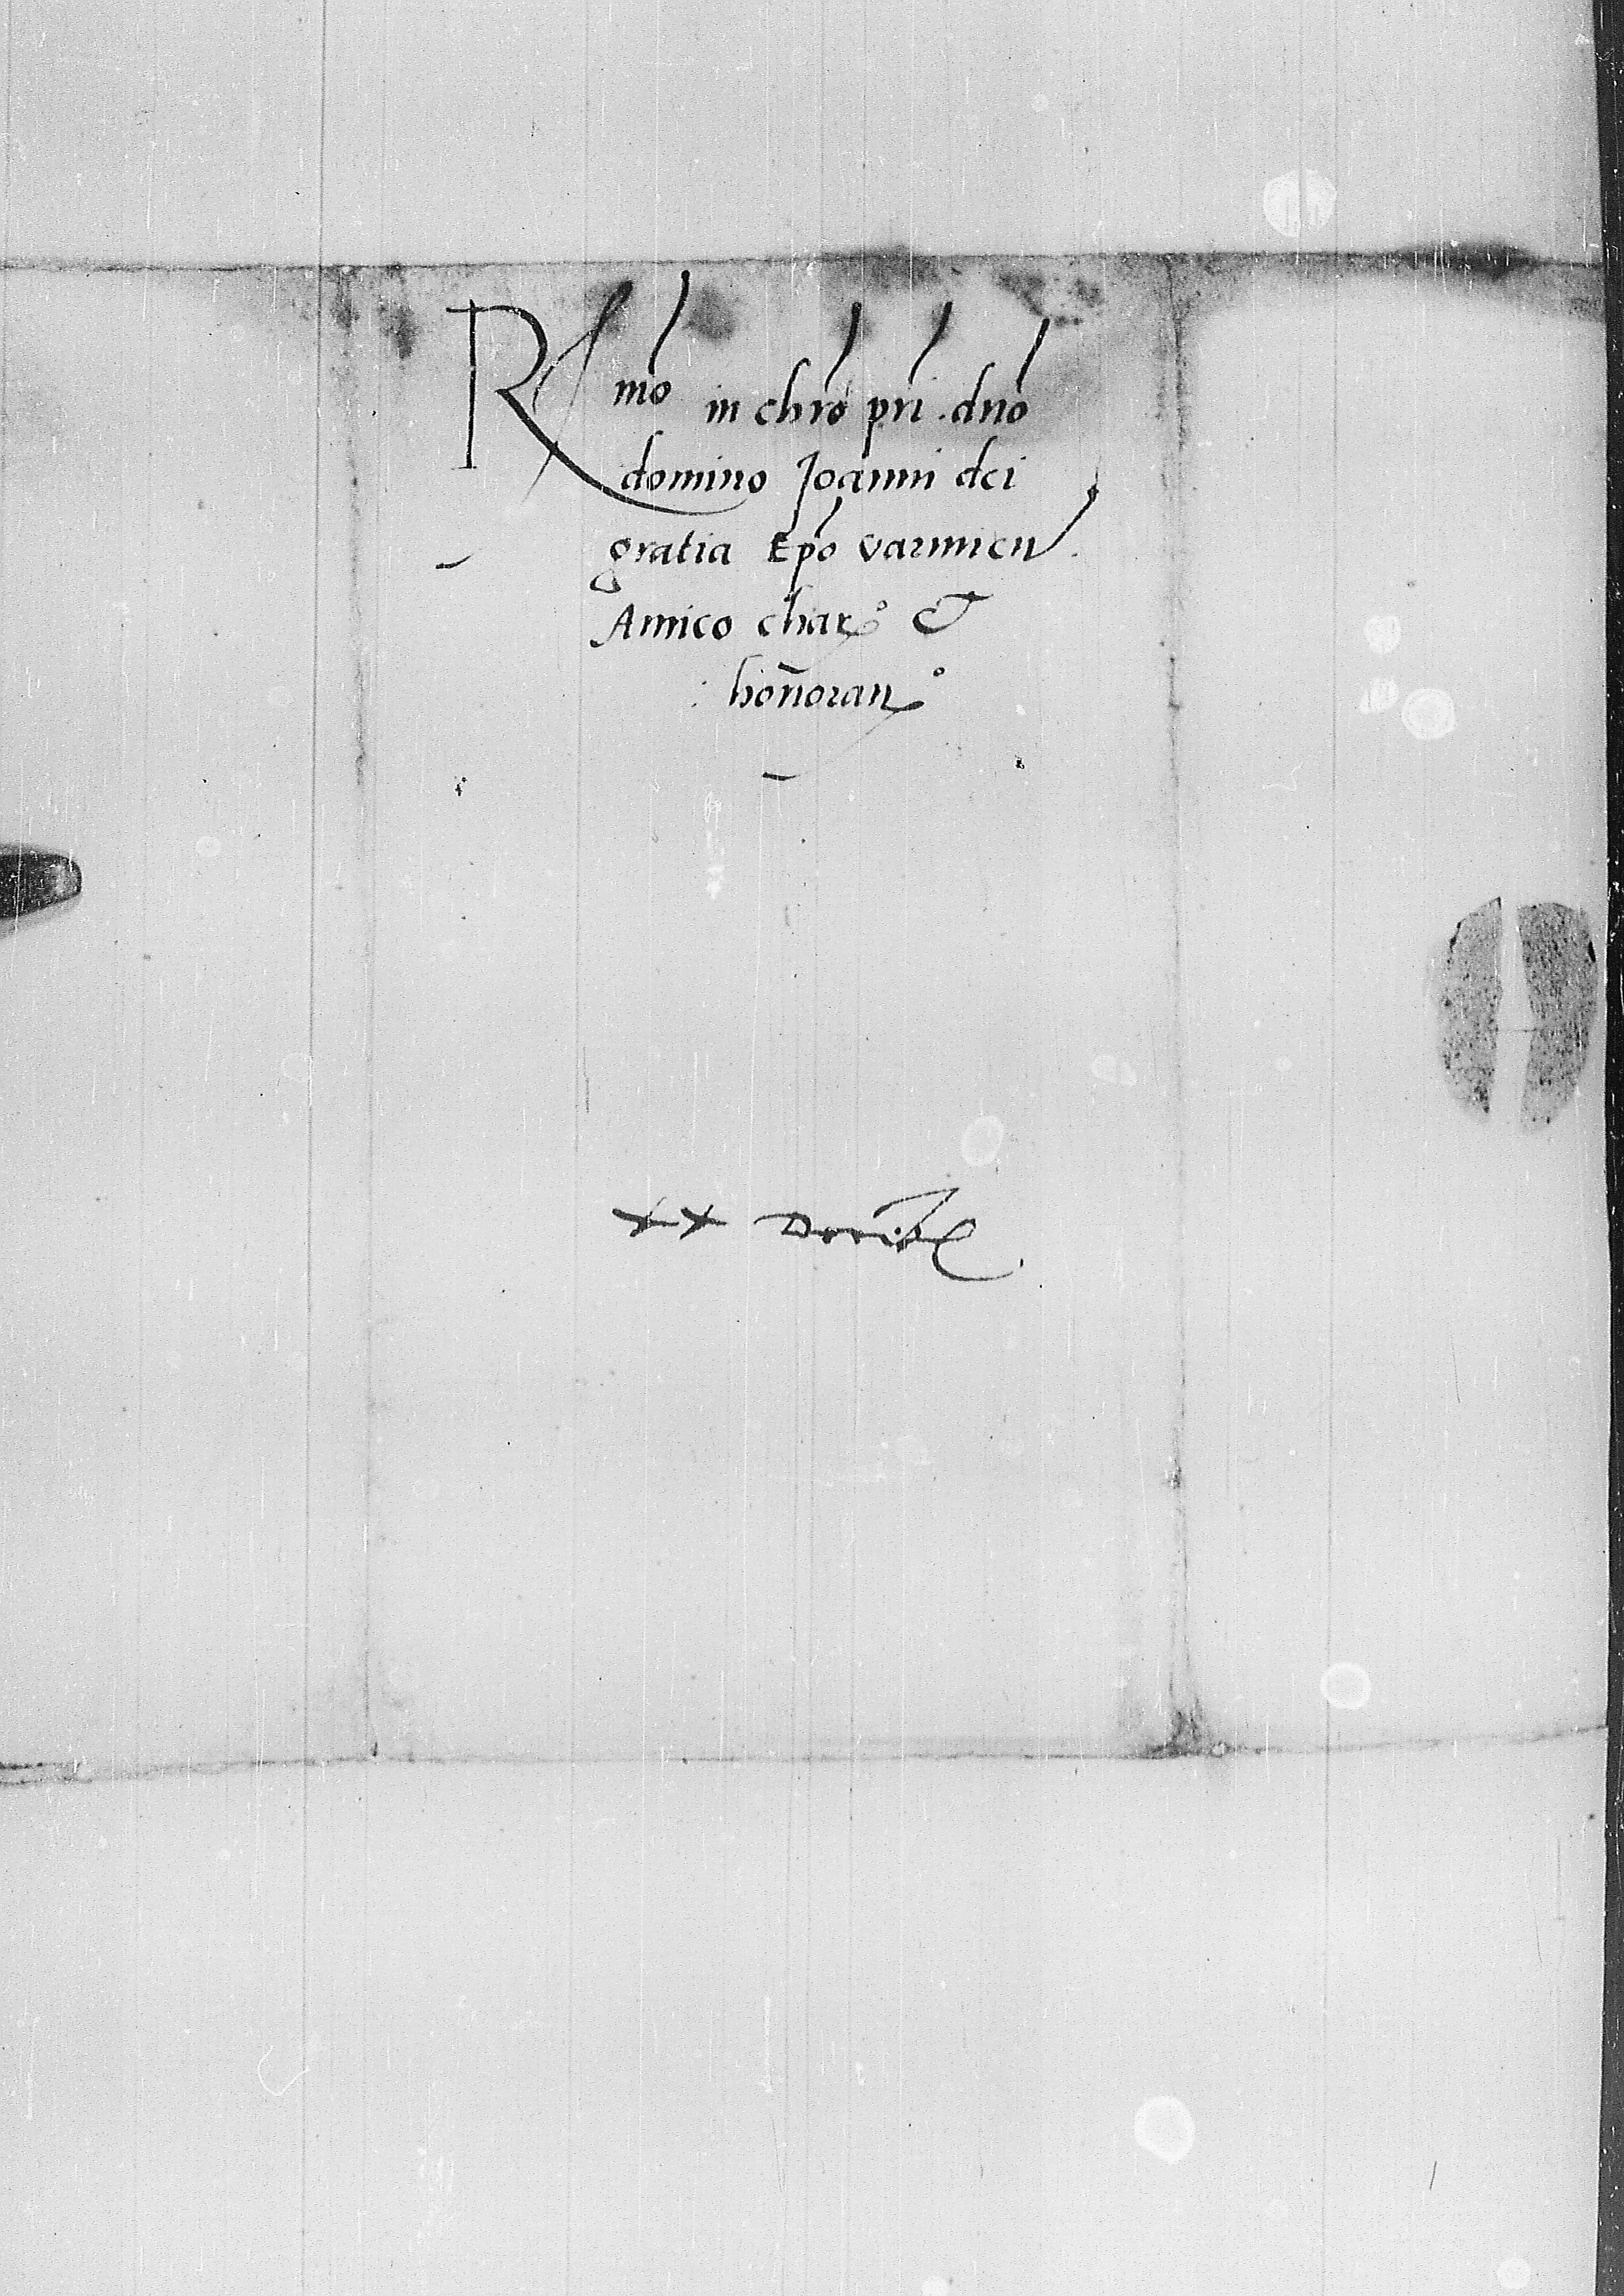 R mo in chro pri . dno
domino Joanni dei
gratia Epo varmien .
Amico char° &
honoran°
xx